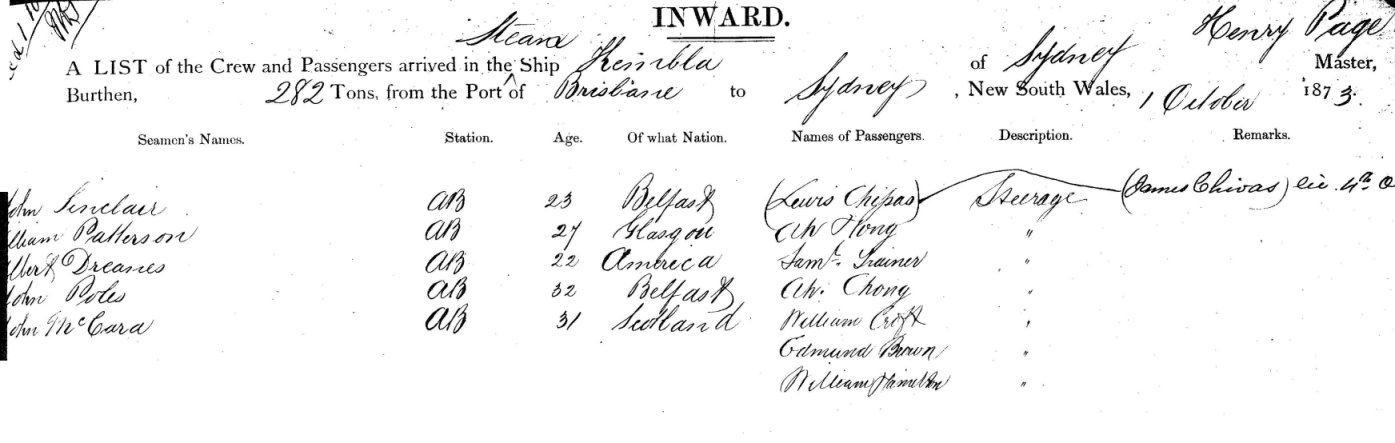 INWARD.
Steam
A LIST of the Crew and Passengers arrived in the ^ Ship Kembla of Sydney Henry Page Master,
Burthen, 282 Tons, from the Port of Brisbane to Sydney, New South Wales, 1 October 1873.
Seamen's Names. Station. Age. Of what Nation. Names of Passengers. Description. Remarks.
John Sinclair AB 23 Belfast (Lewis Chipas) Steerage (James Chivas)
William Patterson AB 27 Glasgow Ah Hong "
Albert AB 22 America Saml. Trainer "
John Poles AB 32 Belfast Ah. Chong "
John McCara AB 31 Scotland William Croft "
Edmund Brown "
William Hamilton "